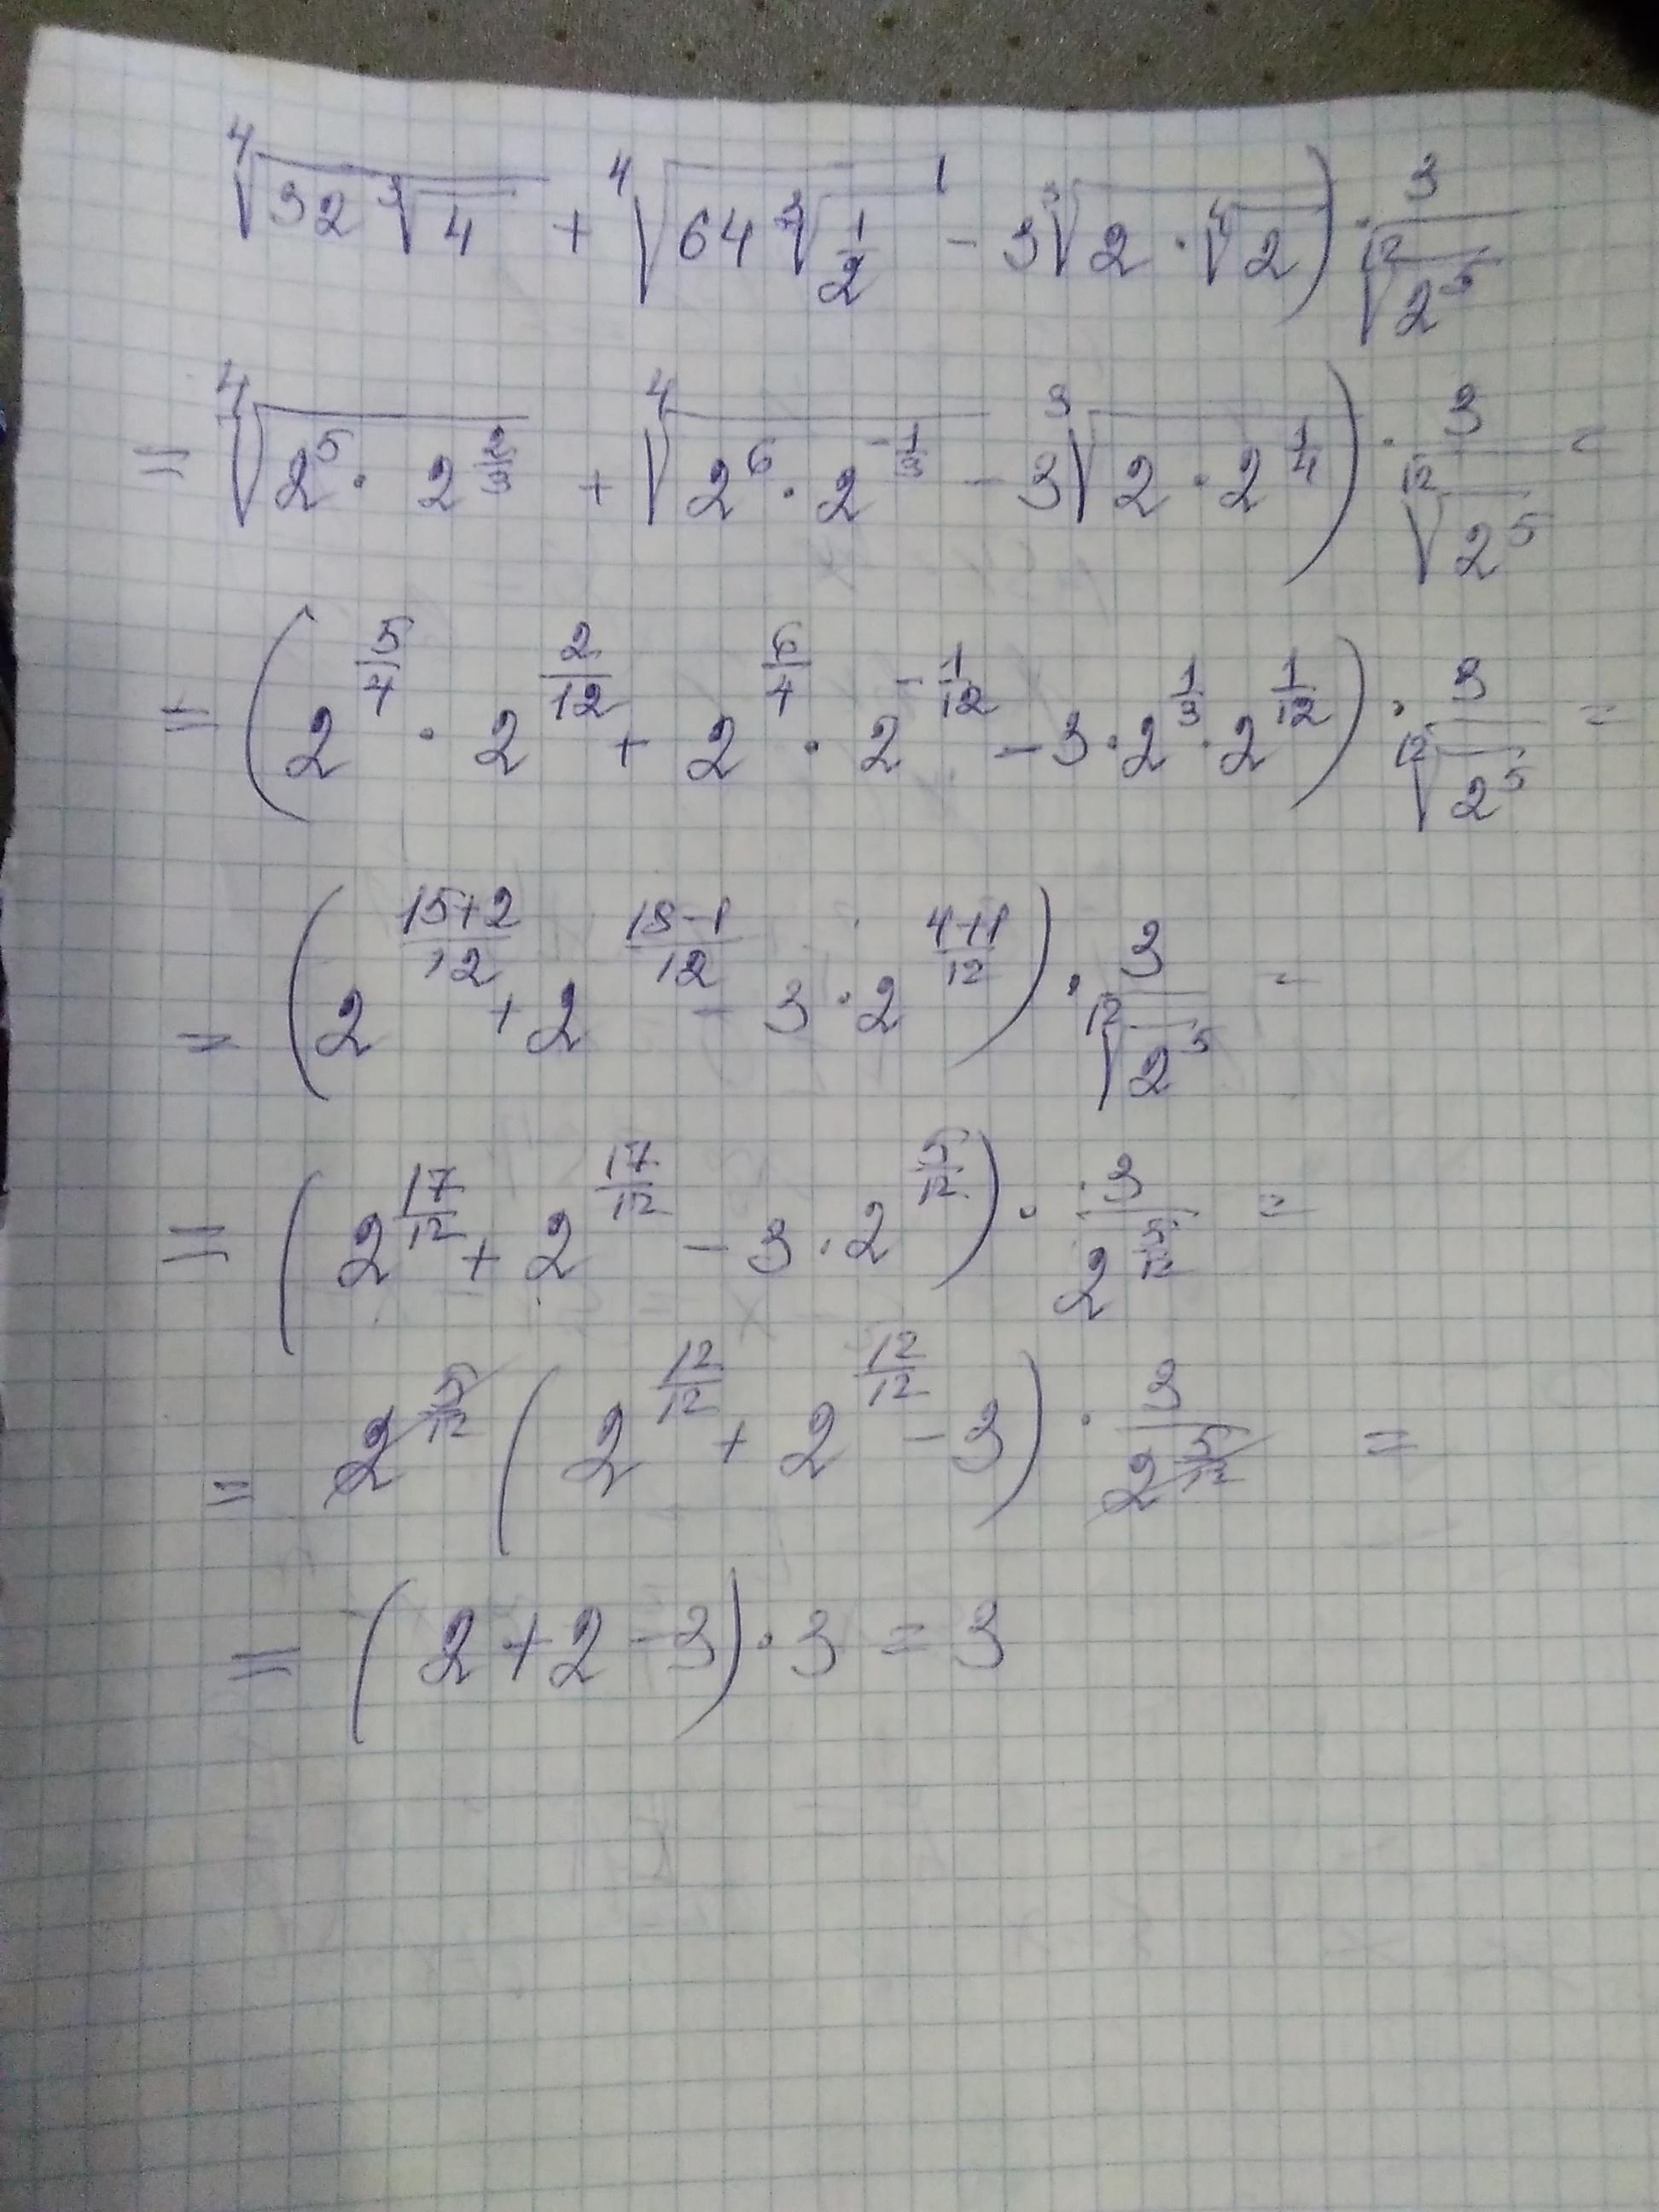 ⁴√(32 ³√4) + ⁴√(64 ³√(1/2)) - 3 ³√(2 · ⁴√2)) · 3/¹²√(2⁵)
= ⁴√(2⁵ · 2^(2/3)) + ⁴√(2⁶ · 2^(-1/3)) - 3 ³√(2 · 2^(1/4))) · 3/¹²√(2⁵) =
= (2^(5/4) · 2^(2/12) + 2^(6/4) · 2^(-1/12) - 3 · 2^(1/3) · 2^(1/12)) · 3/¹²√(2⁵) =
= (2^((15+2)/12) + 2^((18-1)/12) - 3 · 2^((4+1)/12)) · 3/¹²√(2⁵) =
= (2^(17/12) + 2^(17/12) - 3 · 2^(5/12)) · 3/2^(5/12) =
= 2^(5/12) (2^(12/12) + 2^(12/12) - 3) · 3/2^(5/12) =
= (2 + 2 - 3) · 3 = 3